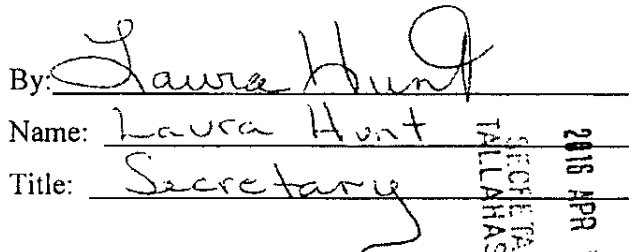 By: Laura Hunt
Name: Laura Hunt
Title: Secretary
2016 APR
SECRETA
TALLAHAS